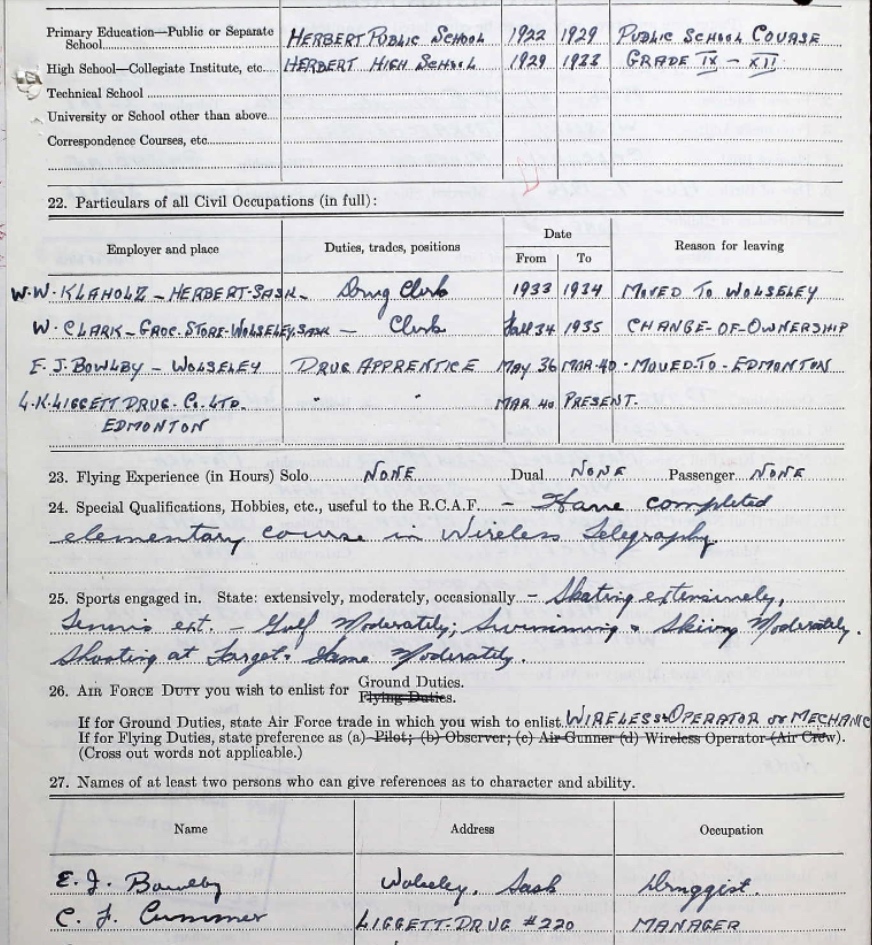 Primary Education—Public or Separate
School HERBERT PUBLIC SCHOOL 1922 1929 PUBLIC SCHOOL COURSE
High School—Collegiate Institute, etc. HERBERT HIGH SCHOOL 1929 1933 GRADE IX – XII
Technical School
University or School other than above
Correspondence Courses, etc.
22. Particulars of all Civil Occupations (in full):
Employer and place Duties, trades, positions Date Reason for leaving
From To
W.W. KLAHOLZ – HERBERT-SASK– Drug Clerk 1933 1934 MOVED TO WOLSELEY
W. CLARK – GROC. STORE-WOLSELEY, SASK – Clerk Fall 34 1935 CHANGE-OF-OWNERSHIP
E. J. BOWLBY – WOLSELEY DRUG APPRENTICE MAY 36 MAR-40 - MOVED-TO-EDMONTON
LIGGETT DRUG. Co. LTD. " " MAR 40 PRESENT.
EDMONTON
23. Flying Experience (in Hours) Solo NONE Dual NONE Passenger NONE
24. Special Qualifications, Hobbies, etc., useful to the R.C.A.F. – Have completed
elementary course in Wireless Telegraphy.
25. Sports engaged in. State: extensively, moderately, occasionally – Skating extensively,
Tennis ext. – Golf Moderately; Swimming & Skiing Moderately.
Shooting at Target & Game Moderately.
26. AIR FORCE DUTY you wish to enlist for Ground Duties.
Flying Duties.
If for Ground Duties, state Air Force trade in which you wish to enlist WIRELESS-OPERATOR or MECHANIC
If for Flying Duties, state preference as (a) Pilot; (b) Observer; (c) Air Gunner (d) Wireless Operator (Air Crew).
(Cross out words not applicable.)
27. Names of at least two persons who can give references as to character and ability.
Name Address Occupation
E. J. Bowlby Wolseley, Sask Druggist.
C. F. Cummer LIGGETT-DRUG #220 MANAGER